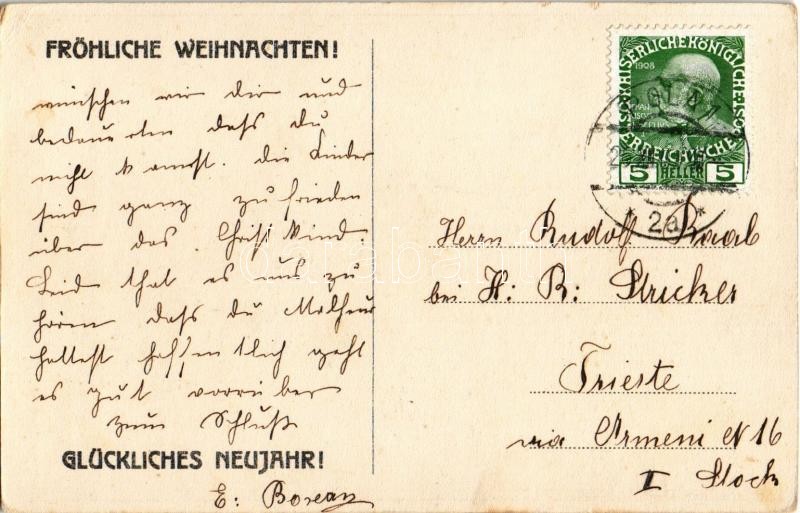 FRÖHLICHE WEIHNACHTEN!
wünschen wir dir und
bedauerten dass du
nicht kannst. die Kinder
sind ganz zufrieden
über das Christkind.
Leid that es uns zu
hören dass du Malheur
hattest hoffentlich geht
es gut vorrüber
zum Schluß
GLÜCKLICHES NEUJAHR!
E:
KAISERLICHE KÖNIGLICHE ÖSTERREICHISCHE
1908
5 HELLER 5
* 2a *
Herrn Rudolf Raab
bei H: R: Stricker
Trieste
via Armeni N 16
II Stock